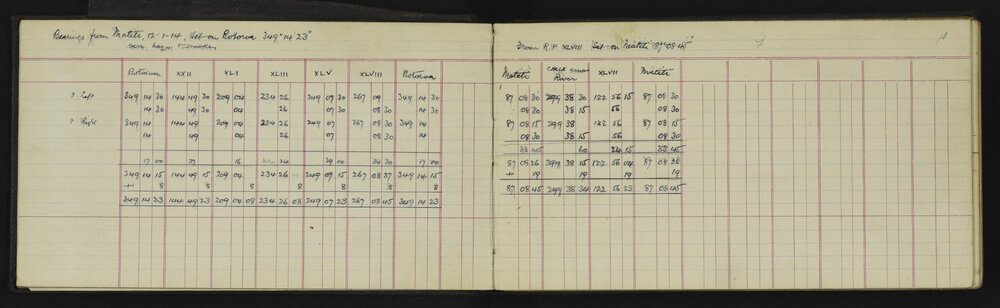 Bearings from Matiti, 12-1-14, Set on Rotorua 349° 14' 23"
Rotorua XXII XLI XLIII XLV XLVIII Rotorua
↑ Left 349 14 30 144 49 30 209 04 234 26 249 07 30 267 09 349 14 30
14 30 49 30 04 26 07 30 08 30 14 30
349 14 144 49 209 04 234 26 249 07 267 08 30 349 14
14 49 04 26 07 08 30 14
17 00 37 16 24 29 00 34 30 17 00
349 14 15 144 49 15 209 04 234 26 00 249 07 15 267 08 37 349 14 15
+ 8 8 8 8 8 8 8
349 14 23 144 49 23 209 04 08 234 26 08 249 07 23 267 08 45 349 14 23
From R.P. XLVIII Set on Matiti 87° 08' 45" 7
Matiti check across River XLVII Matiti
87 08 30 299 38 30 122 56 15 87 08 30
08 30 38 56 15 08 30
87 08 15 299 38 122 56 87 08 15
08 30 38 15 56 08 30
33 45 60 24 15 33 45
87 08 26 299 38 15 122 56 04 87 08 26
+ 19 19 19 19
87 08 45 299 38 34 122 56 23 87 08 45